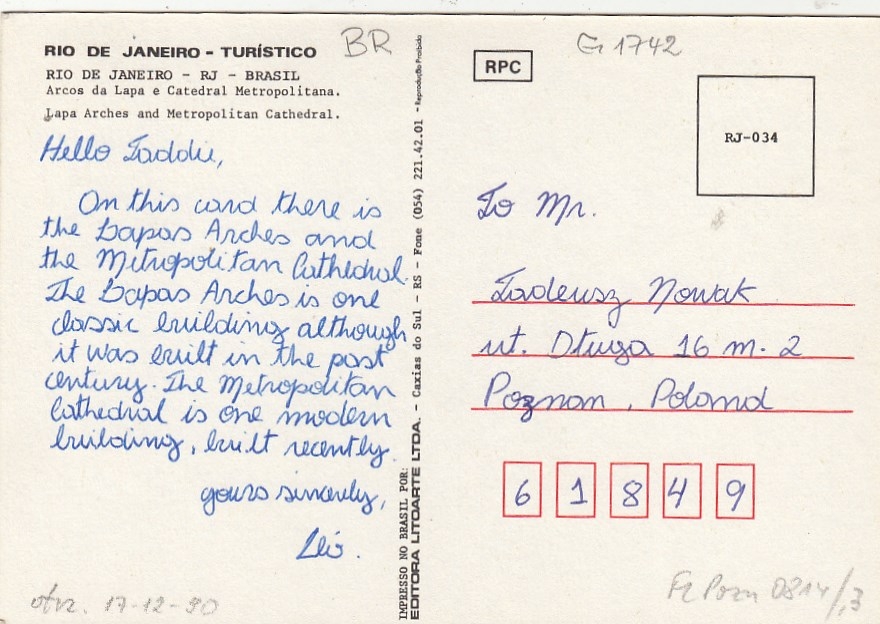 RIO DE JANEIRO - TURÍSTICO
BR
RIO DE JANEIRO - RJ - BRASIL
Arcos da Lapa e Catedral Metropolitana.
Lapa Arches and Metropolitan Cathedral.
Hello Taddie,
On this card there is
the Lapas Arches and
the Metropolitan Cathedral.
The Lapas Arches is one
classic building although
it was built in the past
century. The Metropolitan
Cathedral is one modern
building, built recently.
yours sincerely,
Léo.
17-12-90
IMPRESSO NO BRASIL POR:
EDITORA LITOARTE LTDA. - Caxias do Sul - RS - Fone (054) 221.42.01 - Reprodução Proibida
G 1742
RPC
RJ-034
To Mr.
Tadeusz Nowak
ut. Dtuga 16 m. 2
Poznan, Poland
6 1 8 4 9
Pozn 0814/,3